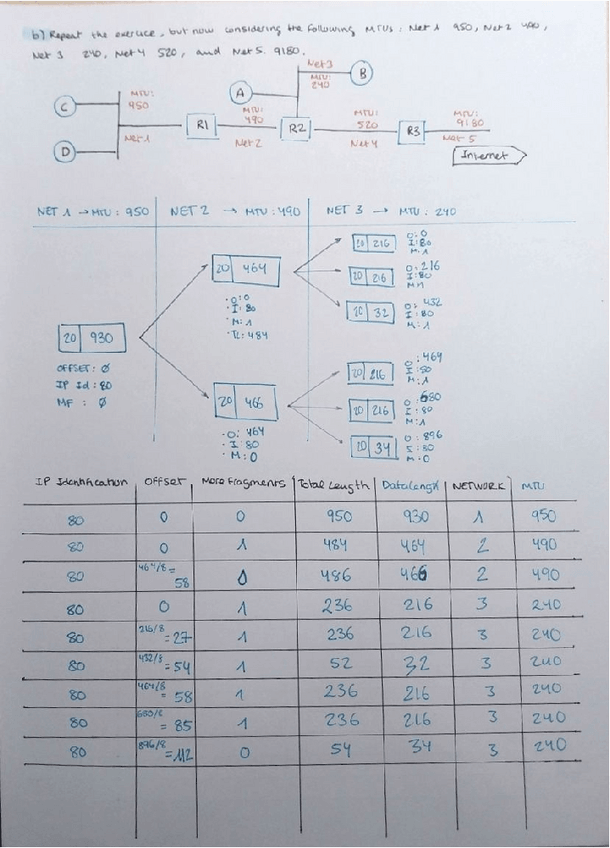 b) Repeat the exercice, but now considering the following MTUs: Net 1 950, Net 2 490,
Net 3 240, Net 4 520, and Net 5. 9180.
Net3
MTU:
240
B
A
C
MTU:
950
R1
MTU:
490
R2
MTU:
520
R3
MTU:
9180
Net1
Net2
Net4
Net 5
D
Internet
NET 1 → MTU: 950
NET 2 → MTU: 490
NET 3 → MTU: 240
20 216
O: 0
I: 80
M: 1
20 464
20 216
O: 216
I: 80
M: 1
·O: 0
·I: 80
·M: 1
·TL: 484
20 32
O: 432
I: 80
M: 1
20 930
OFFSET: Ø
IP Id: 80
MF : Ø
20 216
O: 464
I: 80
M: 1
20 466
20 216
O: 680
I: 80
M: 1
·O: 464
·I: 80
·M: 0
20 34
O: 896
I: 80
M: 0
IP Identification OFFSET More Fragments Total Length Data Lengh NETWORK MTU
80 0 0 950 930 1 950
80 0 1 484 464 2 490
80 464/8 = 58 0 486 466 2 490
80 0 1 236 216 3 240
80 216/8 = 27 1 236 216 3 240
80 432/8 = 54 1 52 32 3 240
80 464/8 = 58 1 236 216 3 240
80 680/8 = 85 1 236 216 3 240
80 896/8 = 112 0 54 34 3 240